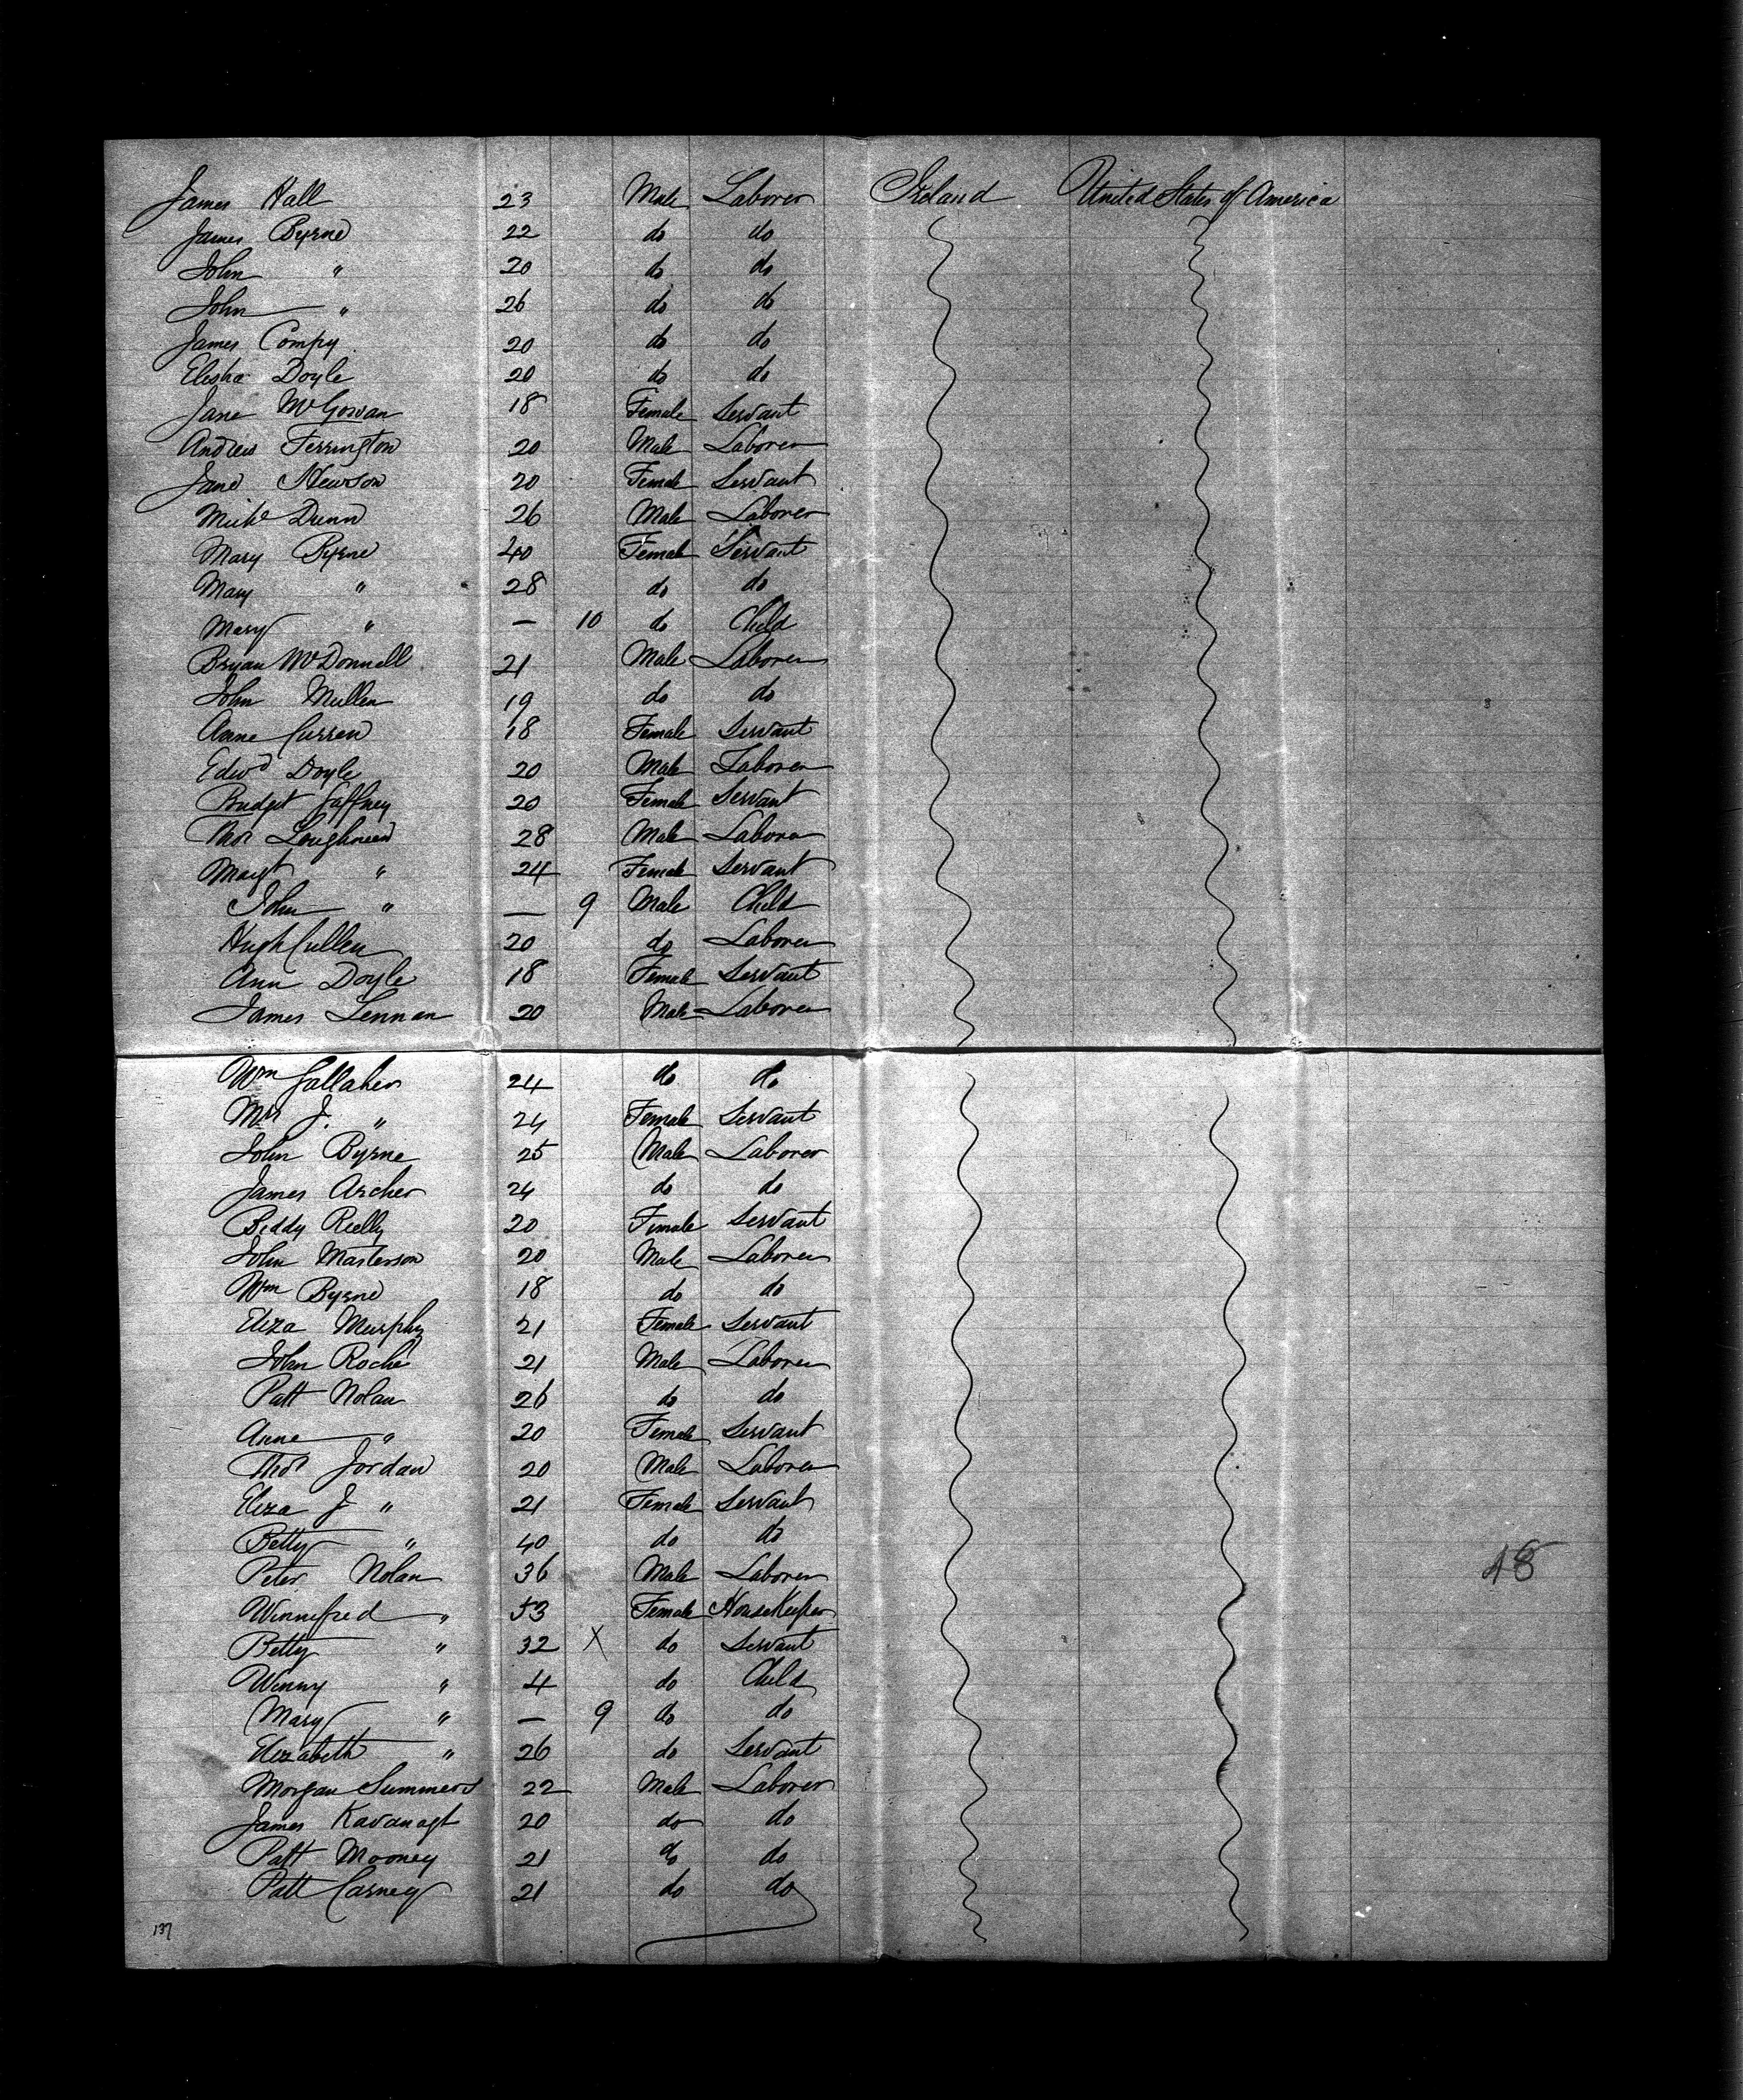 James Hall 23 Male Laborer Ireland United States of America
James Byrne 22 do do
John " 20 do do
John " 26 do do
James Compy 20 do do
Elisha Doyle 20 do do
Jane McGowan 18 Female Servant
Andrew Ferrington 20 Male Laborer
Jane Hewson 20 Female Servant
Michl Dunn 26 Male Laborer
Mary Byrne 40 Female Servant
Mary " 28 do do
Mary " — 10 do Child
Bryan McDonnell 21 Male Laborer
John Mullen 19 do do
Anne Curren 18 Female Servant
Edwd Doyle 20 Male Laborer
Bridget Gaffney 20 Female Servant
Thos 28 Male Laborer
Margt " 24 Female Servant
John " — 9 Male Child
Hugh Cullen 20 do Laborer
Ann Doyle 18 Female Servant
James Lennan 20 Male Laborer
Wm Gallaher 24 do do
Mrs J. " 24 Female Servant
John Byrne 25 Male Laborer
James Archer 24 do do
Biddy Reilly 20 Female Servant
John Masterson 20 Male Laborer
Wm Byrne 18 do do
Eliza Murphy 21 Female Servant
John Roche 21 Male Laborer
Patt Nolan 26 do do
Anne " 20 Female Servant
Thos Jordan 20 Male Laborer
Eliza J " 21 Female Servant
Betty " 40 do do
Peter Nolan 36 Male Laborer 48
Winnifred " 53 Female HouseKeeper
Betty " 32 X do Servant
Winny " 4 do Child
Mary " — 9 do do
Elizabeth " 26 do Servant
Morgan Summers 22 Male Laborer
James Kavanagt 20 do do
Patt Mooney 21 do do
Patt Carney 21 do do
137